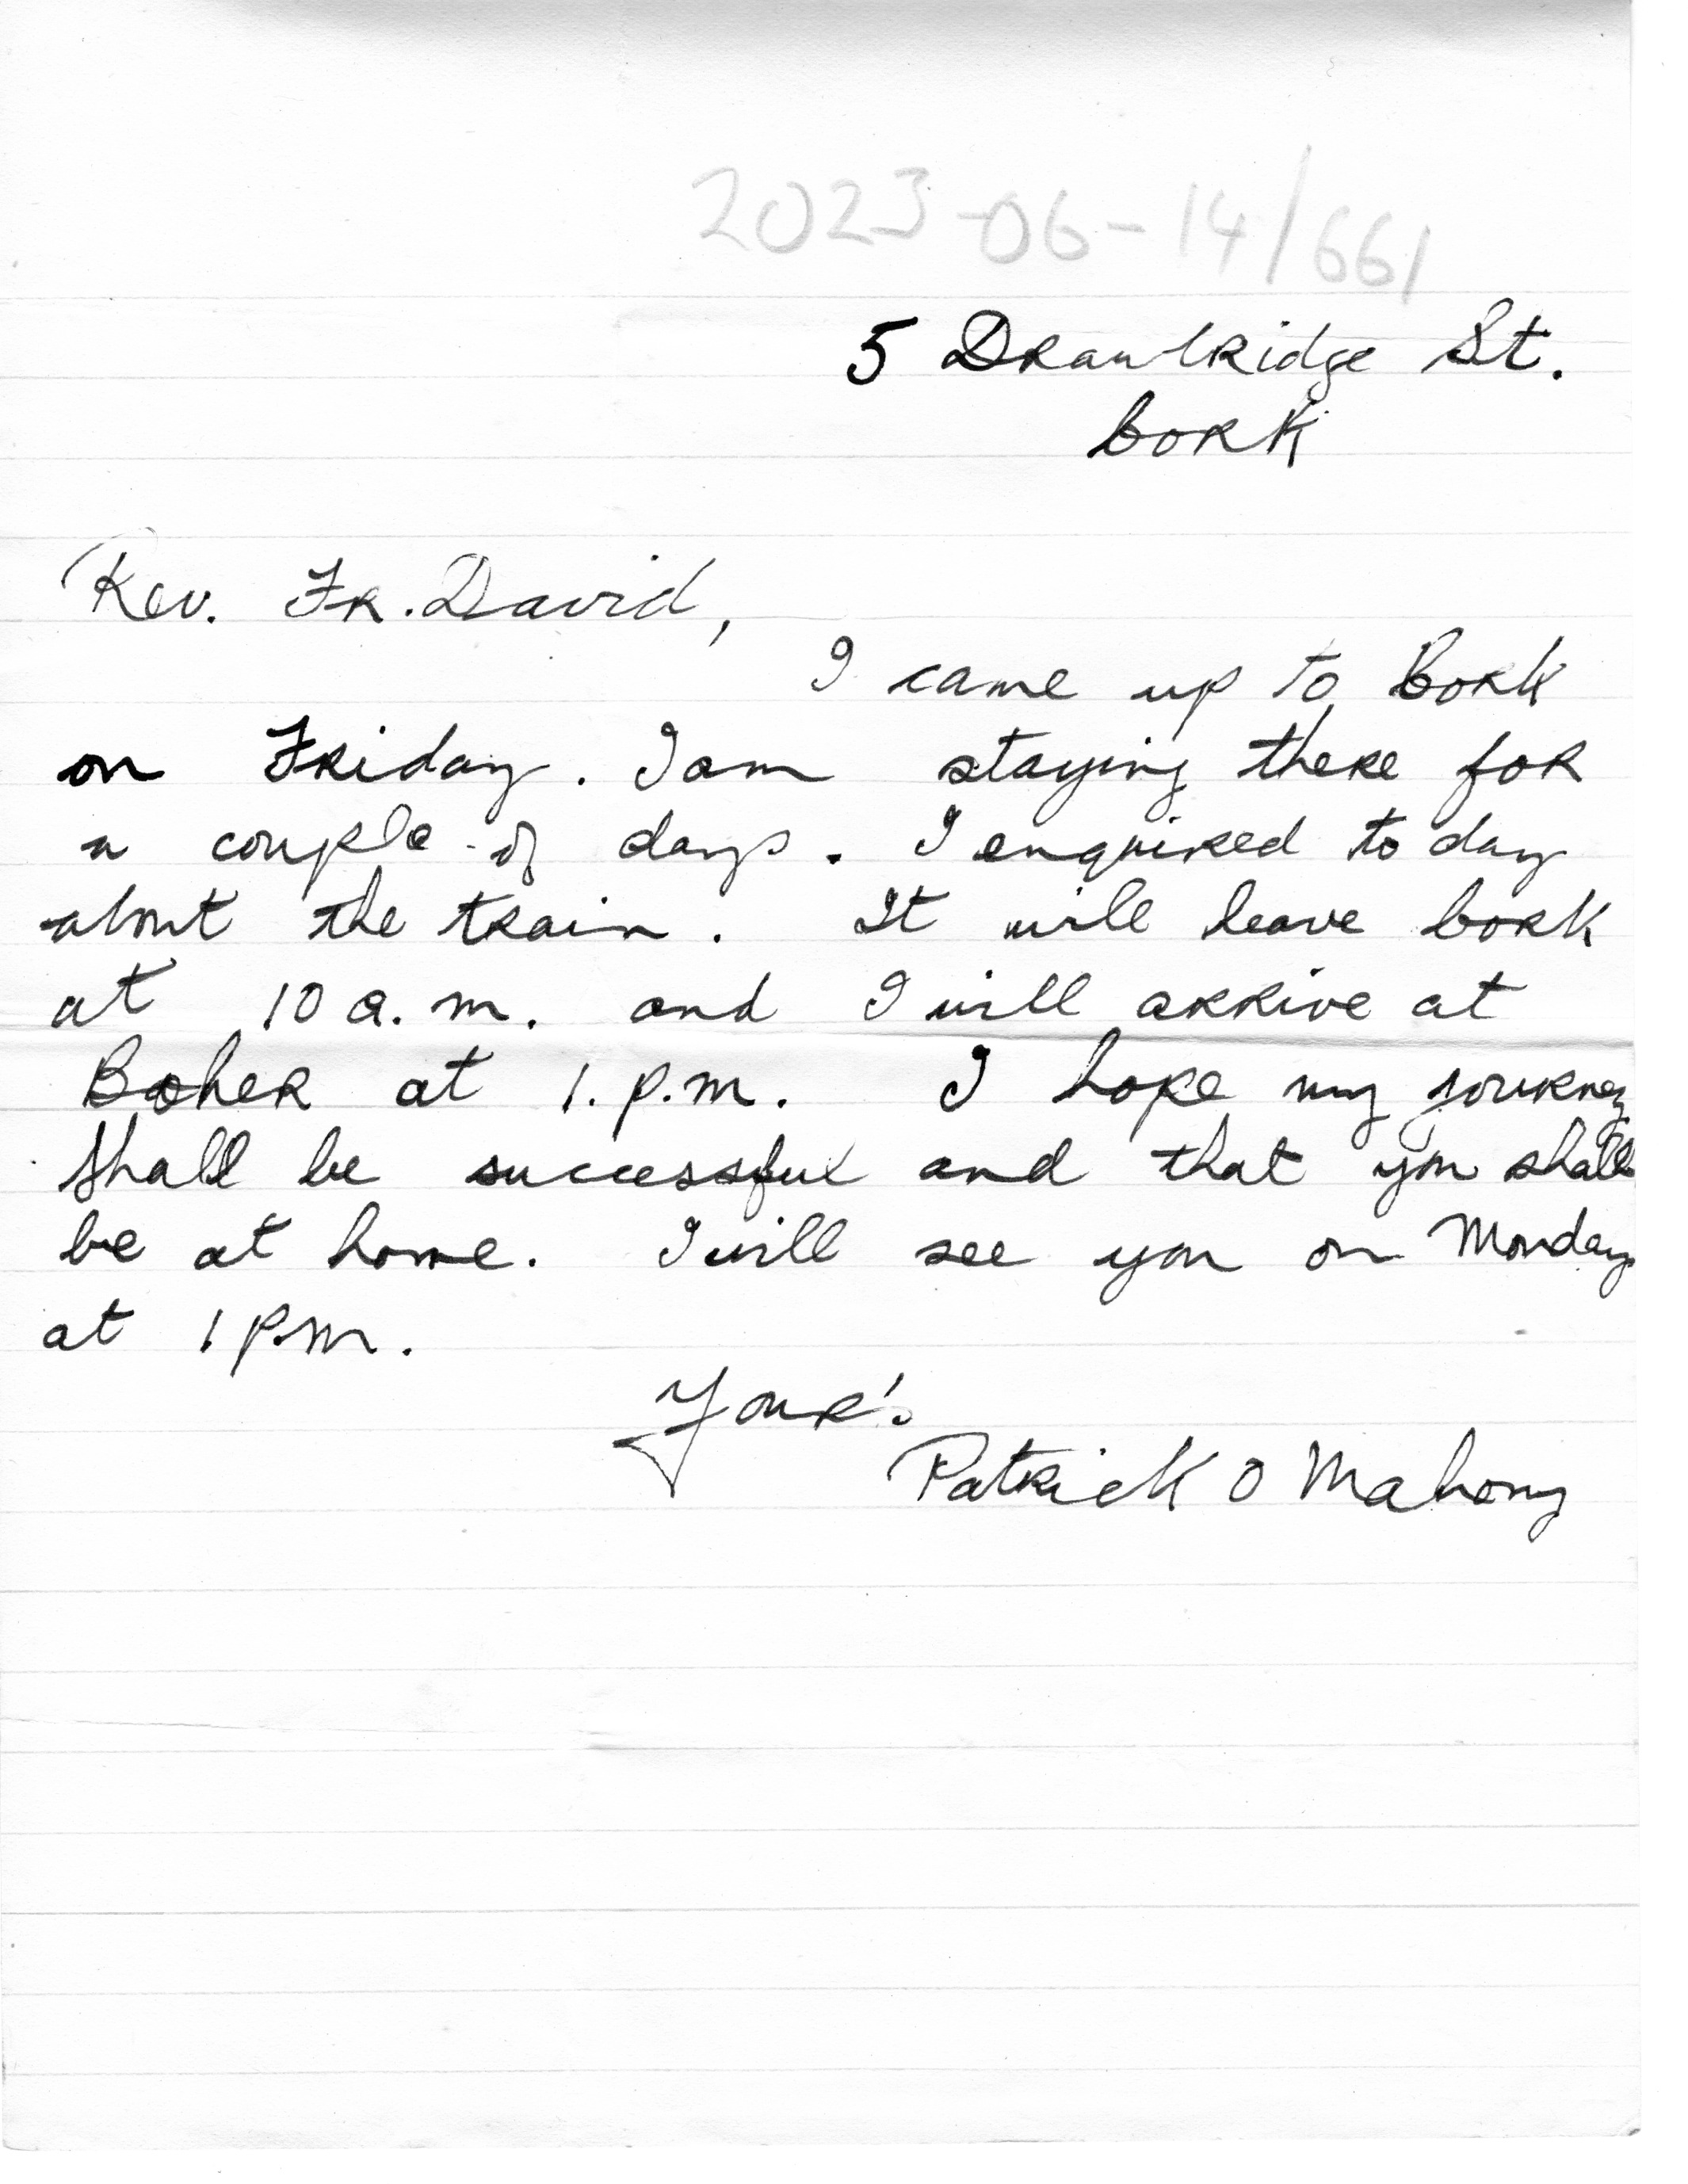 2023-06-14/661
5 Drawbridge St.
Cork
Rev. Fr. David,
I came up to Cork
on Friday. I am staying there for
a couple of days. I enquired to day
about the train. It will leave Cork
at 10 a.m. and I will arrive at
Boher at 1.p.m. I hope my journey
shall be successful and that you shall
be at home. I will see you on Monday
at 1 p.m.
Your's
Patrick O Mahony